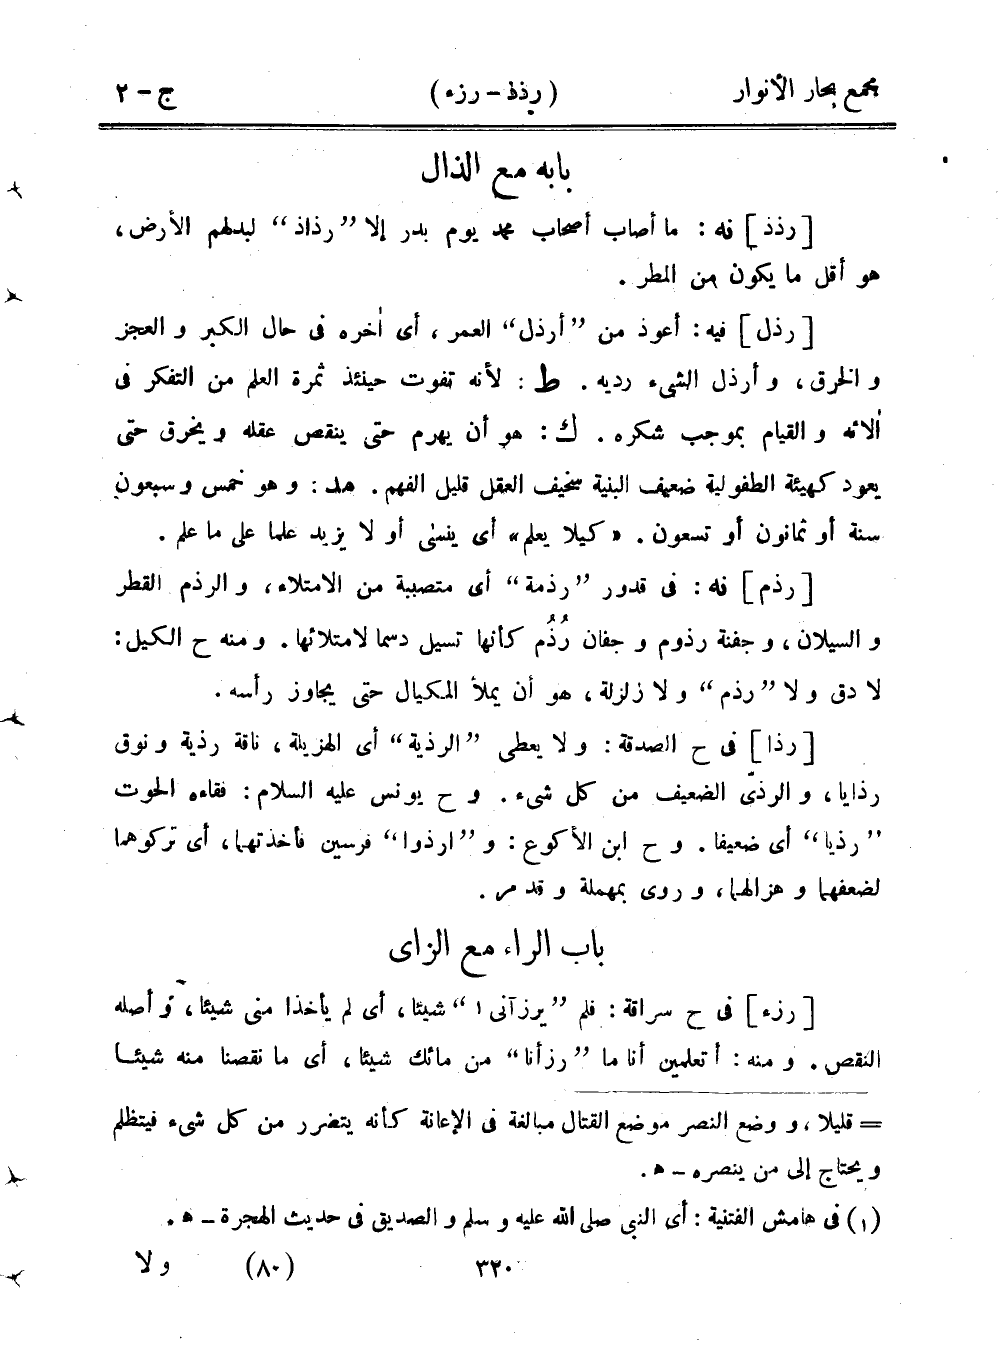 مجمع بحار الأنوار (رذذ - رزء) ج - ٢
بابه مع الذال
[رذذ] نه: ما أصاب أصحاب محمد يوم بدر إلا ”رذاذ“ لبدلهم الأرض،
هو أقل ما يكون من المطر.
[رذل] فيه: أعوذ من ”أرذل“ العمر، أى أخره فى حال الكبر و العجز
و الخرق، و أرذل الشىء رديه. ط: لأنه تفوت حينئذ ثمرة العلم من التفكر فى
ألائه و القيام بموجب شكره. ك: هو أن يهرم حتى ينقص عقله و يخرق حتى
يعود كهيئة الطفولية ضعيف البنية سخيف العقل قليل الفهم. مد: و هو خمس و سبعون
سنة أو ثمانون أو تسعون. «كيلا يعلم» أى ينسٰى أو لا يزيد علما على ما علم.
[رذم] نه: فى قدور ”رذمة“ أى متصببة من الامتلاء، و الرذم القطر
و السيلان، و جفنة رذوم و جفان رُذُم كأنها تسيل دسما لامتلائها. و منه ح الكيل:
لا دق و لا ”رذم“ و لا زلزلة، هو أن يملأ المكيال حتى يجاوز رأسه.
[رذا] فى ح الصدقة: و لا يعطى ”الرذية“ أى الهزيلة، ناقة رذية و نوق
رذايا، و الرذىّ الضعيف من كل شىء. و ح يونس عليه السلام: فقاءه الحوت
”رذيا“ أى ضعيفا. و ح ابن الأكوع: و ”ارذوا“ فرسين فأخذتهما، أى تركوهما
لضعفهما و هزالهما، و روى بمهملة و قد مر.
باب الراء مع الزاى
[رزء] فى ح سراقة: فلم ”يرزآنى ١“ شيئا، أى لم يأخذا منى شيئا، و أصله
النقص. و منه: أتعلمين أنا ما ”رزأنا“ من مائك شيئا، أى ما نقصنا منه شيئا
= قليلا، و وضع النصر موضع القتال مبالغة فى الإعانة كأنه يتضرر من كل شىء فيتظلم
و يحتاج إلى من ينصره - ه.
(١) فى هامش الفتنية: أى النبى صلى الله عليه و سلم و الصديق فى حديث الهجرة - ه.
٣٢٠ (٨٠) و لا